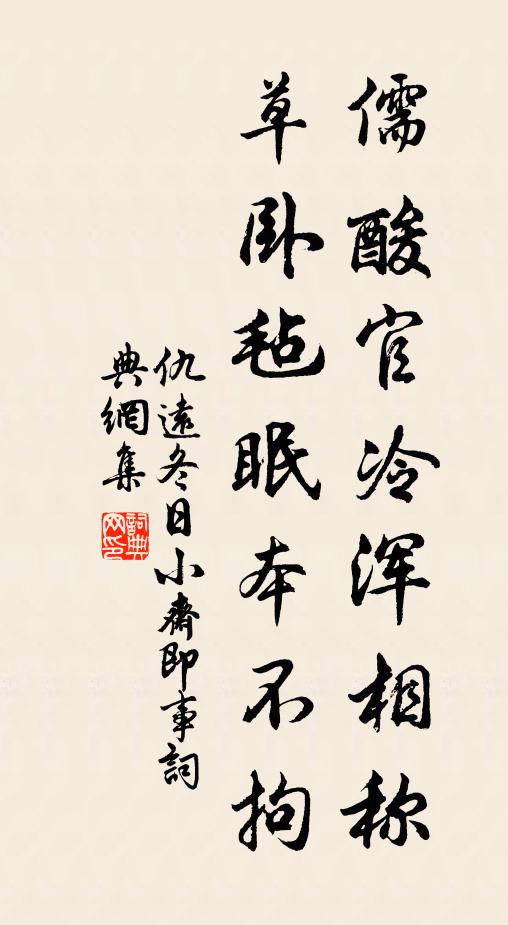 儒酸官冷浑相称
草卧毡眠本不拘
仇遠冬日小齋即事詞
典網集
詞典网印